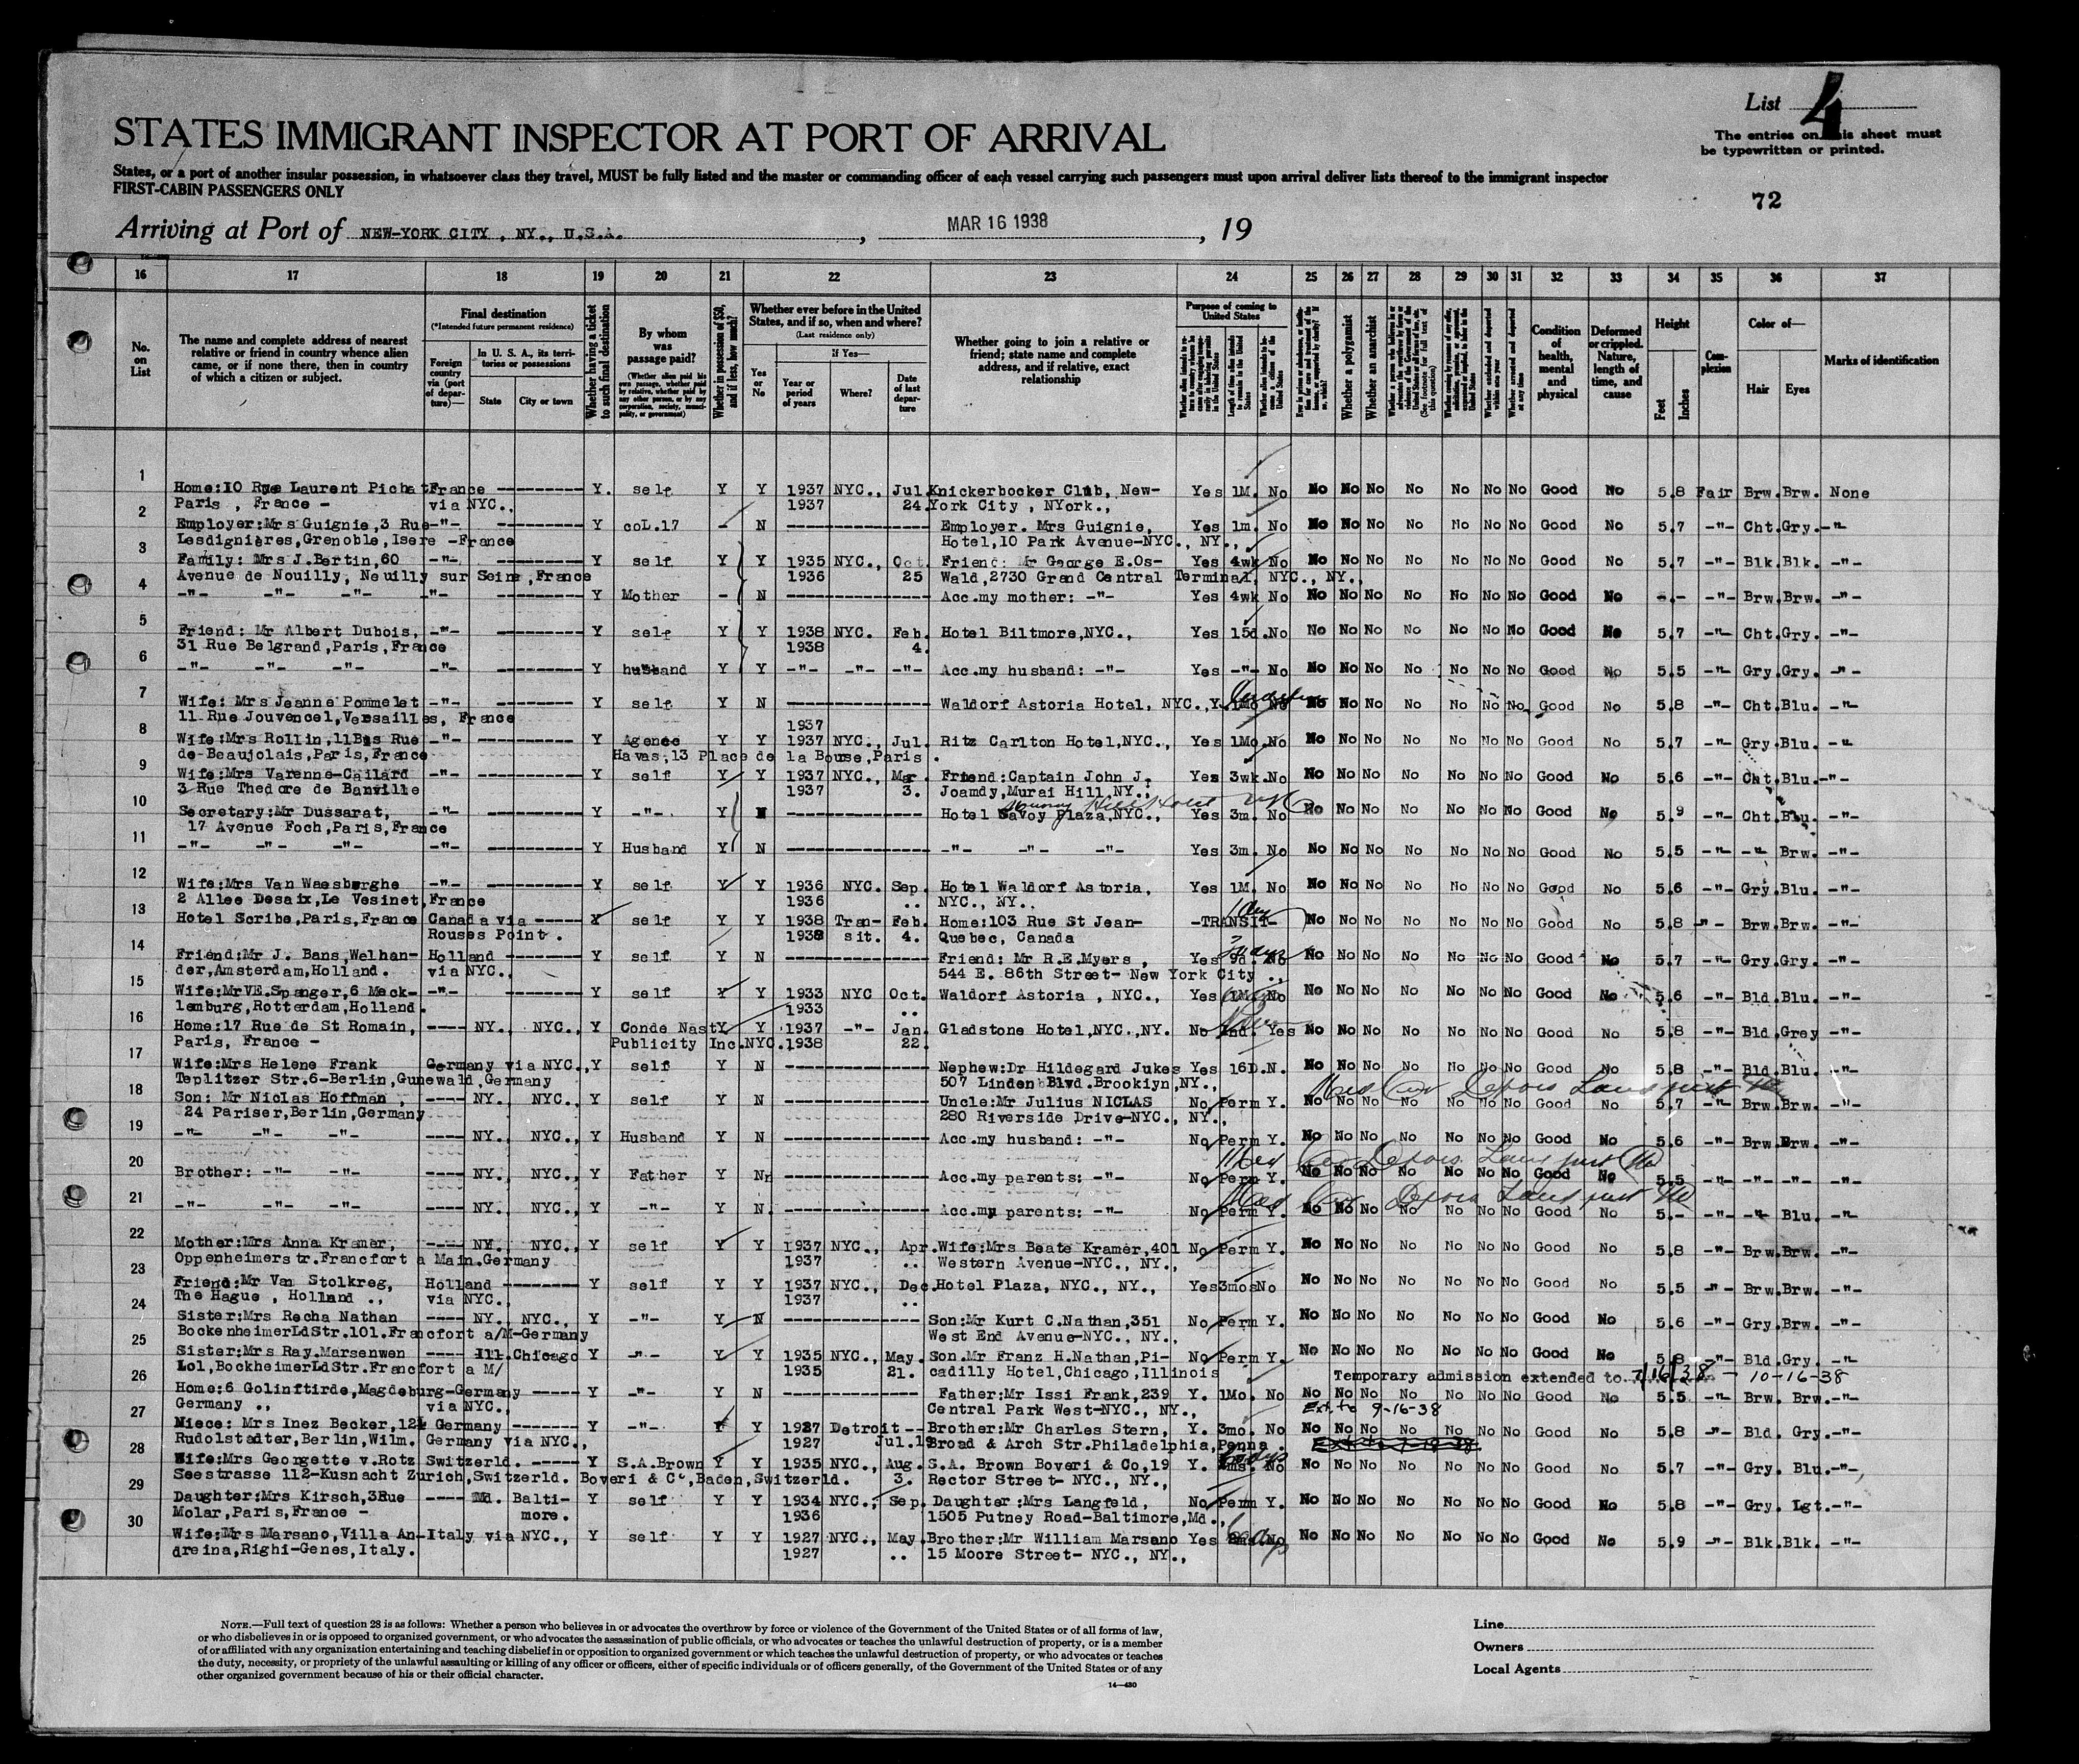 List 4
The entries on this sheet must
be typewritten or printed.
STATES IMMIGRANT INSPECTOR AT PORT OF ARRIVAL
States, or a port of another insular possession, in whatsoever class they travel, MUST be fully listed and the master or commanding officer of each vessel carrying such passengers must upon arrival deliver lists thereof to the immigrant inspector
FIRST-CABIN PASSENGERS ONLY
72
Arriving at Port of NEW-YORK CITY , NY., U.S.A. , MAR 16 1938 , 19
16 17 18 19 20 21 22 23 24 25 26 27 28 29 30 31 32 33 34 35 36 37
No. on List
The name and complete address of nearest relative or friend in country whence alien came, or if none there, then in country of which a citizen or subject.
Final destination
(*Intended future permanent residence)
Foreign country via (port of departure)—
In U. S. A., its territories or possessions
State City or town
Whether having a ticket to such final destination
By whom was passage paid?
(Whether alien paid his own passage, whether paid by relative, whether paid by any other person, or by any corporation, society, municipality, or government)
Whether in possession of $50, and if less, how much?
Whether ever before in the United States, and if so, when and where?
(Last residence only)
Yes or No
If Yes—
Year or period of years Where? Date of last departure
Whether going to join a relative or friend; state name and complete address, and if relative, exact relationship
Purpose of coming to United States
Length of time alien intends to remain in the United States
Whether a polygamist
Whether an anarchist
Condition of health, mental and physical
Deformed or crippled. Nature, length of time, and cause
Height
Feet Inches
Complexion
Color of—
Hair Eyes
Marks of identification
1 Home:10 Rue Laurent Pichat France ---------- Y. self Y Y 1937 NYC., Jul. Knickerbocker Club, New- Yes 1M. No No No No No No No No Good No 5.8 Fair Brw. Brw. None
Paris , France - via NYC., 1937 24. York City , NYork.,
2 Employer:Mrs Guignie,3 Rue -"- ---------- Y coL.17 - N ---------------- Employer. Mrs Guignie, Yes 1m. No No No No No No No No Good No 5.7 -"- Cht. Gry. -"-
Lesdignières,Grenoble, Isere -France Hotel,10 Park Avenue-NYC., NY.,
3 Family: Mrs J.Bertin,60 -"- ---------- Y self Y Y 1935 NYC., Oct. Friend: Mr George E.Os- Yes 4wk No No No No No No No No Good No 5.7 -"- Blk. Blk. -"-
Avenue de Nouilly, Neuilly sur Seine,France 1936 25 Wald,2730 Grand Central Terminal, NYC., NY.,
4 -"- -"- -"- -"- ---------- Y Mother - N ---------------- Acc.my mother: -"- Yes 4wk No No No No No No No No Good No -.- -"- Brw. Brw. -"-
5 Friend: Mr Albert Dubois, -"- ---------- Y self Y Y 1938 NYC. Feb. Hotel Biltmore,NYC., Yes 15d. No No No No No No No No Good No 5.7 -"- Cht. Gry. -"-
31 Rue Belgrand,Paris,France 1938 4.
6 -"- -"- -"- -"- ---------- Y husband Y Y -"- -"- -"- Acc.my husband: -"- Yes -"- No No No No No No No No Good No 5.5 -"- Gry. Gry. -"-
7 Wife: Mrs Jeanne Pommelet -"- ---------- Y self Y N ---------------- Waldorf Astoria Hotel, NYC., Y. 1Mo No No No No No No No No Good No 5.8 -"- Cht. Blu. -"-
11 Rue Jouvencel,Versailles, France 1937
8 Wife:Mrs Rollin,11Bis Rue -"- ---------- Y Agence Y Y 1937 NYC., Jul. Ritz Carlton Hotel,NYC., Yes 1Mo. No No No No No No No No Good No 5.7 -"- Gry. Blu. -"-
de-Beaujolais,Paris,France Havas,13 Place de la Bouse,Paris .
9 Wife:Mrs Varenne-Cailard -"- ---------- Y self Y Y 1937 NYC., Mar. Friend:Captain John J. Yes 3wk. No No No No No No No No Good No 5.6 -"- Cht. Blu. -"-
3 Rue Thedore de Banville 1937 3. Joamdy,Murai Hill,NY.,
Murray Hill Hotel NYC
10 Secretary:Mr Dussarat, -"- ---------- Y -"- Y N ---------------- Hotel Savoy Plaza,NYC., Yes 3m. No No No No No No No No Good No 5.9 -"- Cht. Blu. -"-
17 Avenue Foch,Paris,France
11 -"- -"- -"- -"- ---------- Y Husband Y N ---------------- -"- -"- -"- Yes 3m. No No No No No No No No Good No 5.5 -"- -"- Brw. -"-
12 Wife:Mrs Van Waesberghe -"- ---------- Y self Y Y 1936 NYC. Sep. Hotel Waldorf Astoria, Yes 1M. No No No No No No No No Good No 5.6 -"- Gry. Blu. -"-
2 Allee Desaix,Le Vesinet,France 1936 .. NYC., NY..
13 Hotel Scribe,Paris,France Canada via ----- Y self Y Y 1938 Tran- Feb. Home:103 Rue St Jean- -TRANSIT- 1 day No No No No No No No Good No 5.8 -"- Brw. Brw. -"-
Rouses Point . 1938 sit. 4. Quebec, Canada
14 Friend:Mr J. Bans,Welhan- Holland -------- Y self Y N ---------------- Friend: Mr R.E.Myers , Yes No No No No No No No No Good No 5.7 -"- Gry. Gry. -"-
der,Amsterdam,Holland. via NYC., 544 E. 86th Street- New York City .,
15 Wife:MrVE.Spanger,6 Meck- -"- -------- Y self Y Y 1933 NYC Oct. Waldorf Astoria , NYC., Yes 1M. No No No No No No No No Good No 5.6 -"- Bld. Blu. -"-
lenburg,Rotterdam,Holland. 1933 ..
16 Home:17 Rue de St Romain, ---- NY. NYC., Y Conde Nast Y Y 1937 -"- Jan. Gladstone Hotel,NYC.,NY. No Ind. Yes No No No No No No No Good No 5.8 -"- Bld. Grey -"-
Paris, France - Publicity Inc.NYC. 1938 22.
17 Wife:Mrs Helene Frank Germany via NYC., Y self Y N ---------------- Nephew:Dr Hildegard Jukes Yes 16D. N. No No No No No No No Good No 5.8 -"- Bld. Blu. -"-
Teplitzer Str.6-Berlin,Gunewald,Germany 507 Linden Blvd.Brookiyn,NY.,
18 Son: Mr Niclas Hoffman , ---- NY. NYC., Y self Y N ---------------- Uncle:Mr Julius NICLAS No Perm Y. No No No No No No No Good No 5.7 -"- Brw. Brw. -"-
24 Pariser,Berlin,Germany 280 Riverside Drive-NYC., NY.,
19 -"- -"- -"- ---- NY. NYC., Y Husband Y N ---------------- Acc.my husband: -"- No Perm Y. No No No No No No No Good No 5.6 -"- Brw. Brw. -"-
20 Brother: -"- -"- ---- NY. NYC., Y Father Y N ---------------- Acc.my parents: -"- No Perm Y. No No No No No No No Good No 5.5 -"- -"- -"- -"-
21 -"- -"- -"- ---- NY. NYC., Y -"- Y N. ---------------- Acc.my parents: -"- No Perm Y. No No No No No No No Good No 5.- -"- -"- Blu. -"-
22 Mother:Mrs Anna Kramer, ---- NY. NYC., Y self Y Y 1937 NYC., Apr. Wife:Mrs Beate Kramer,401 No Perm Y. No No No No No No No Good No 5.8 -"- Brw. Brw. -"-
Oppenheimerstr.Francfort a Main.Germany 1937 .. Western Avenue-NYC., NY.,
23 Friend:Mr Van Stolkreg, Holland --------- Y self Y Y 1937 NYC., Dec. Hotel Plaza, NYC., NY., Yes 3mos No No No No No No No No Good No 5.5 -"- Brw. Brw. -"-
The Hague , Holland ., via NYC., 1937 ..
24 Sister:Mrs Recha Nathan ---- NY. NYC., Y -"- Y N ---------------- Son:Mr Kurt C.Nathan,351 No Perm Y. No No No No No No No Good No 5.6 -"- Gry. Brw. -"-
BockenheimerLdStr.101.Francfort a/M-Germany West End Avenue-NYC., NY.,
25 Sister:Mrs Ray.Marsenwen ---- Ill.Chicago Y -"- Y Y 1935 NYC., May. Son.Mr Franz H.Nathan,Pi- No Perm Y. No No No No No No No Good No 5.8 -"- Bld. Gry. -"-
Lol,BockheimerLdStr.Francfort a M/ 1935 21. cadilly Hotel,Chicago,Illinois
Temporary admission extended to 7/16/38 - 10-16-38
26 Home:6 Golinftirde,Magdeburg-Germany ----- Y -"- Y N ---------------- Father:Mr Issi Frank,239 Y. 1Mo. No No No No No No No No Good No 5.5 -"- Brw. Brw. -"-
Germany ., via NYC., Central Park West-NYC., NY., Ext to 9-16-38
27 Niece: Mrs Inez Becker,124 Germany ------- Y -"- Y Y 1927 Detroit-- Brother:Mr Charles Stern, Y. 3mo. No No No No No No No No Good No 5.8 -"- Bld. Gry. -"-
Rudolstadter,Berlin,Wilm. Germany via NYC., 1927 Jul.19 Broad & Arch Str.Philadelphia,Penna .
28 Wife:Mrs Georgette v.Rotz Switzerld. ----- Y S.A.Brown Y Y 1935 NYC., Aug. S.A. Brown Boveri & Co,19 Y. No No No No No No No No Good No 5.7 -"- Gry. Blu. -"-
Seestrasse 112-Kusnacht Zurich,Switzerld. Boveri & Cº,Baden,Switzerld. 3. Rector Street- NYC., NY.,
29 Daughter:Mrs Kirsch,3Rue ---- Md. Balti- Y self Y Y 1934 NYC., Sep. Daughter :Mrs Langfeld, No Perm Y. No No No No No No No Good No 5.8 -"- Gry. Lgt. -"-
Molar,Paris,France - more. 1936 1505 Putney Road-Baltimore,Md.,
30 Wife:Mrs Marsano,Villa An- Italy via NYC., Y self Y Y 1927 NYC., May. Brother:Mr William Marsano Yes No No No No No No No No Good No 5.9 -"- Blk. Blk. -"-
dreina,Righi-Genes,Italy. 1927 .. 15 Moore Street- NYC., NY.,
NOTE.—Full text of question 28 is as follows: Whether a person who believes in or advocates the overthrow by force or violence of the Government of the United States or of all forms of law,
or who disbelieves in or is opposed to organized government, or who advocates the assassination of public officials, or who advocates or teaches the unlawful destruction of property, or is a member
of or affiliated with any organization entertaining and teaching disbelief in or opposition to organized government or which teaches the unlawful destruction of property, or who advocates or teaches
the duty, necessity, or propriety of the unlawful assaulting or killing of any officer or officers, either of specific individuals or of officers generally, of the Government of the United States or of any
other organized government because of his or their official character.
14—430
Line
Owners
Local Agents